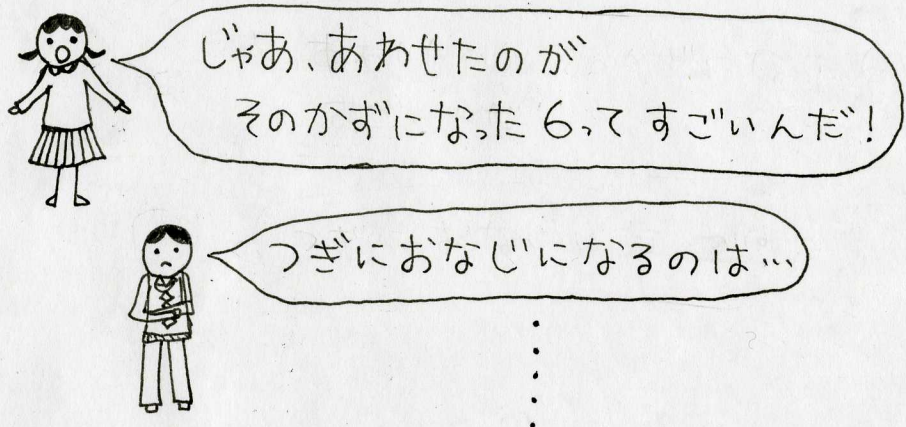 じゃあ、あわせたのが
そのかずになった6ってすごいんだ!
つぎにおなじになるのは…